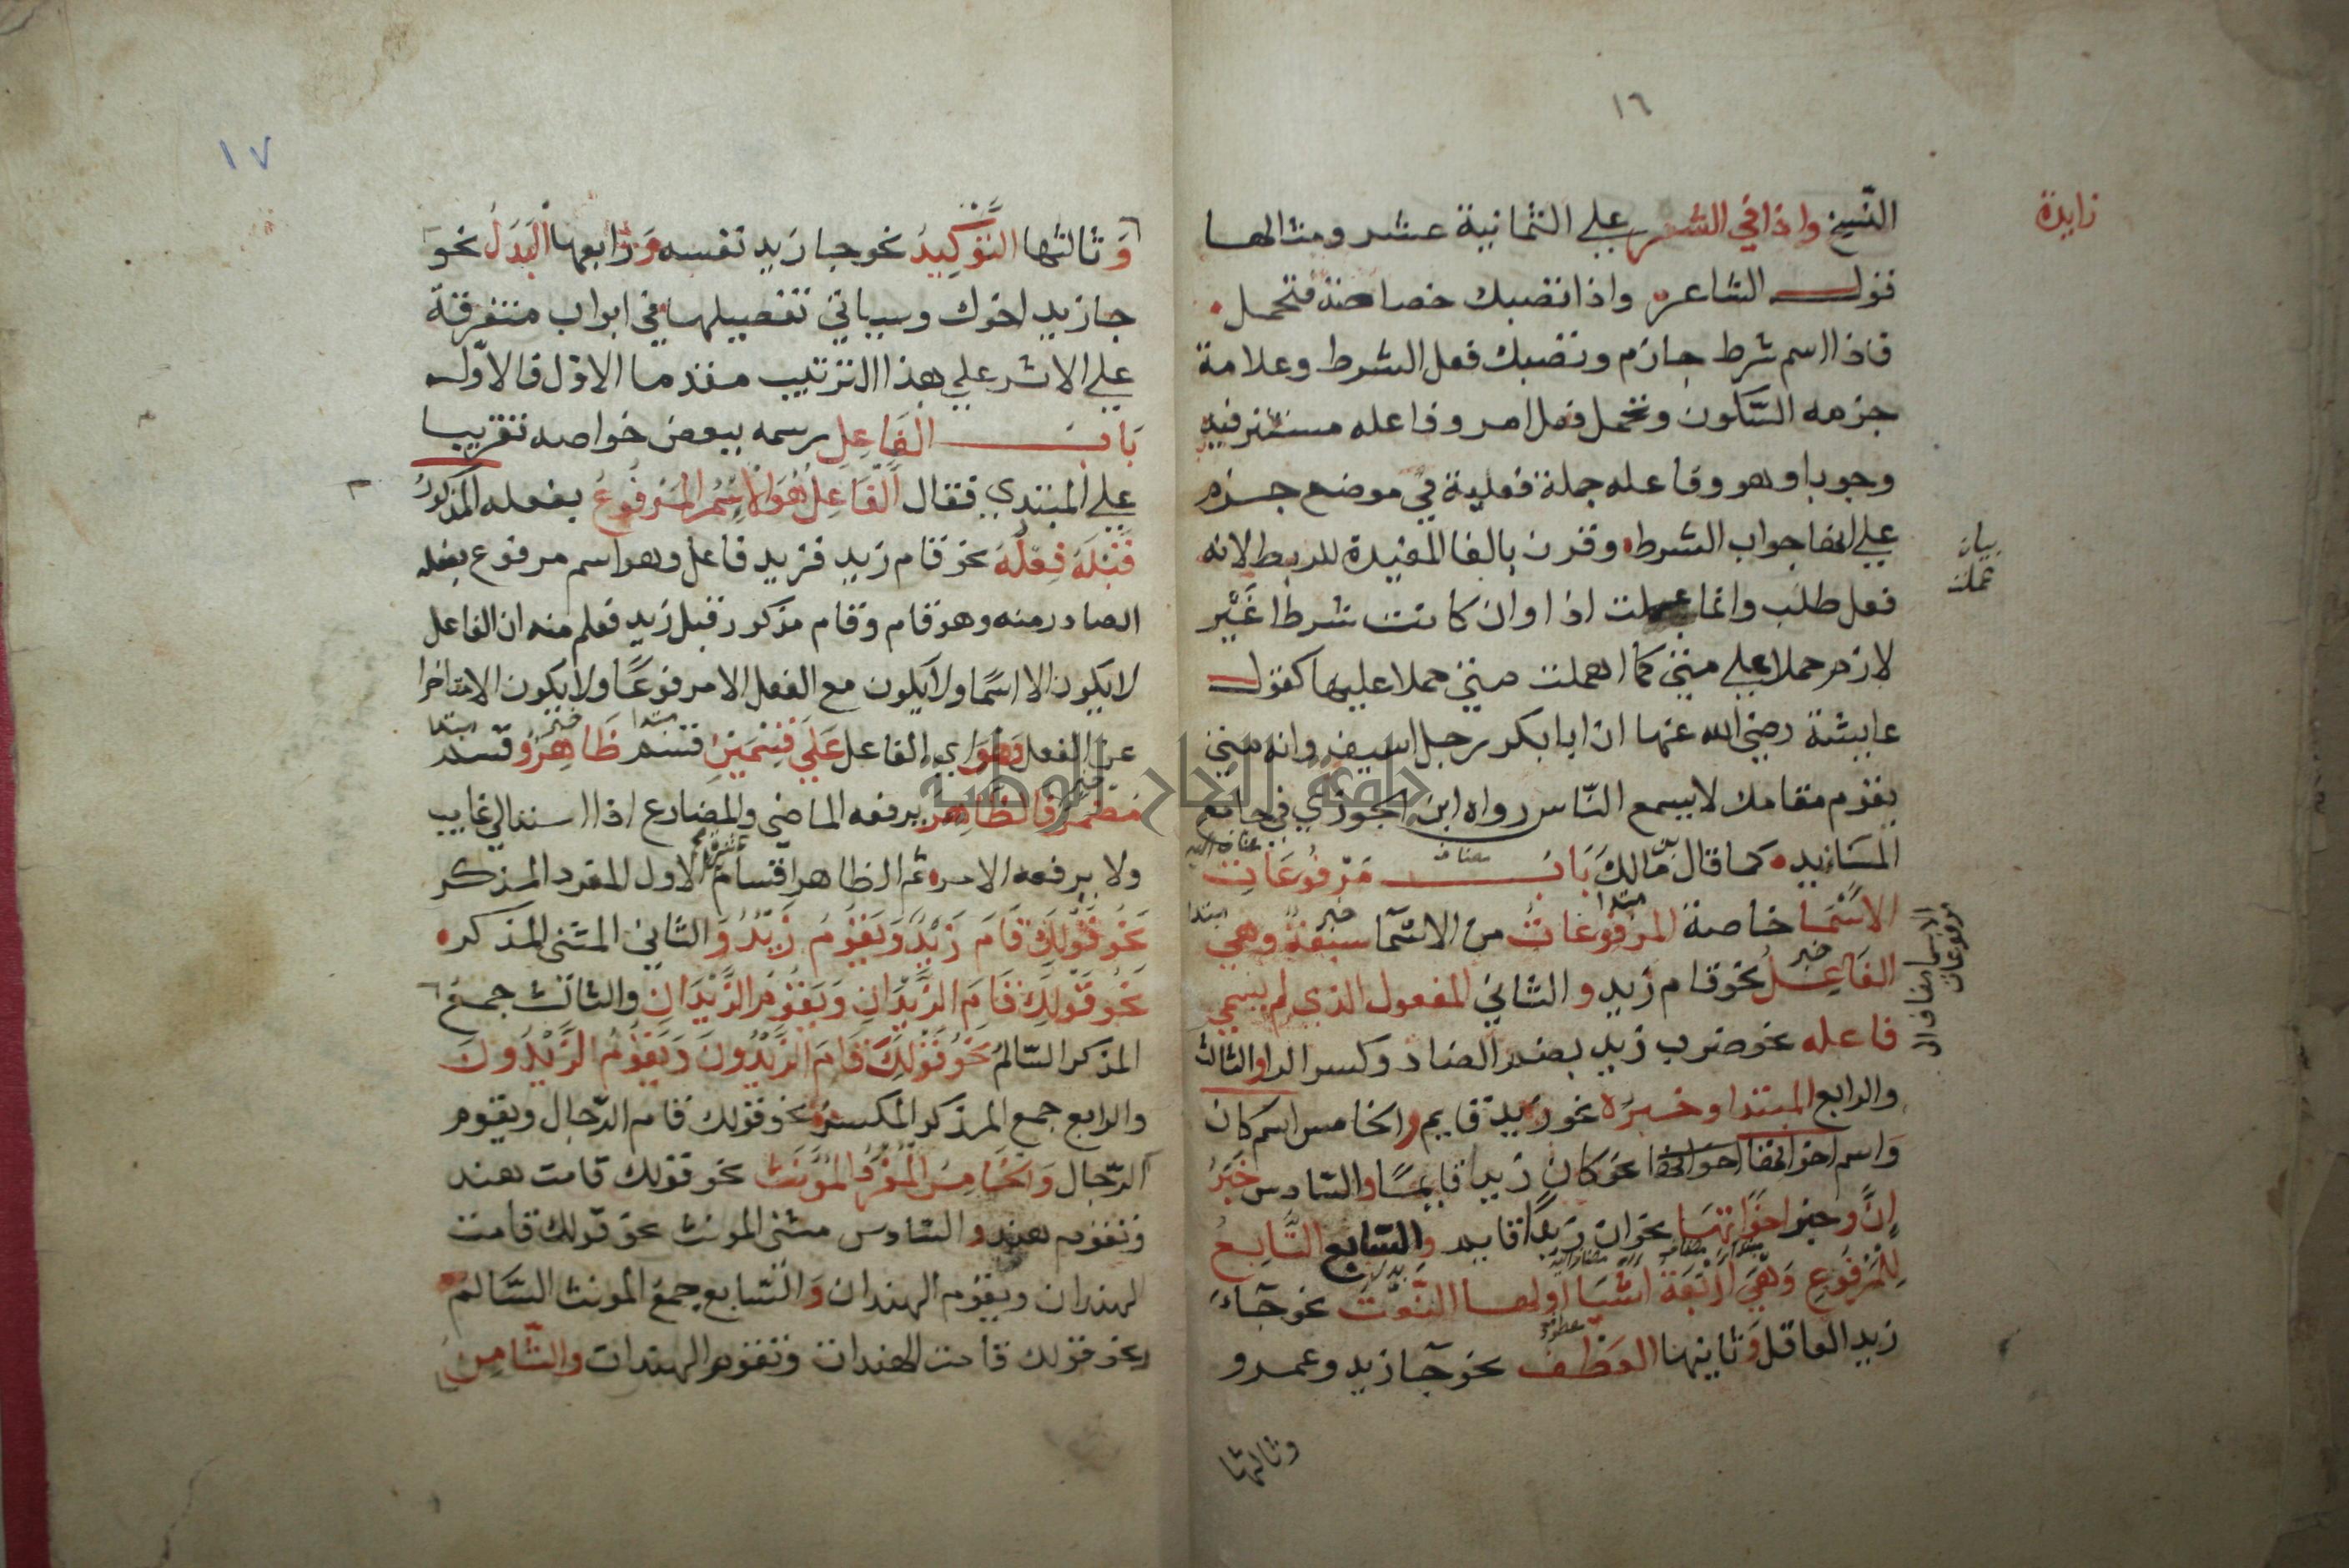 ١٦
زايدة
النسخ واذا في الشعر علي الثمانية عشر ومثالها
قول الشاعر واذا تصبك خصاصة فتحمل
فاذا اسم شرط جازم وتصبك فعل الشرط وعلامة
جزمه السّكون وتحمل فعل امر وفاعله مستتر فيه
وجوبا وهو وفاعله جملة فعلية في موضع جزم
علي انها جواب الشرط وقرن بالفا المفيدة للربط لانه
بيان
عملت
فعل طلب وانما عملت اذا وان كانت شرطا غَيْر
لازم حملا علي متي كما اهملت متي حملا عليها كقول
عايشة رضي الله عنها ان ابا بكر رجل اسيف وانه متي
يقوم مقامك لا يسمع النّاس رواه ابن الجوزي في جامع
المسَانيد كما قال بن مّالك بَابُ مَرْفُوعَاتِ
مضاف
مضاف اليه
الاَسْمَا خاصة المرفوعَاتُ من الاسْمآ سبعَة وهي
مبتدا
خبر
مبتدا
الفَاعِلُ نحو قام زيد والثاني المفعول الذي لم يسمي
خبر
الاسما مضاف اليه
مرفوعات
فاعله نحو ضرب زيد بضم الضاد وكسر الرا والثالث
والرابع المبتدا وخبرُه نحو زيد قايم والخامس اسم كان
وَاسم اخواتها نحو كان زيد قايمًا والسّادس خَبَرُ
إنَّ وخبر اخوَاتهَا نحو ان زيدًا قايم والسَّابع التَّابِعُ
لِلْمَرْفُوعِ وَهْيَ ارْبَعَة اشيَا اولها النّعْت نحو جآءَ
زيد العاقل وَثانيها العَطْف نحو جآ زيد وعمرو
معطوف
وثالثها
١٧
وَثالثها التَّوْكِيدَ نحو جا زيد نفسه وَرَابعها البَدَلُ نحو
جا زيد اخوك وسياتي تفصيلها في ابواب متفرقة
علي الاثر علي هذا الترتيب مقدما الاوّل فالاوّل
بَابُ الفَاعِلِ رسمه ببعض خواصه تقريبا
علي المبتدي فقال الفَاعِل هُوَ الاِسْمُ المَرْفُوعُ بفعله المذكورُ
قَبْلَهُ فِعْلُهُ نحو قام زيد فزيد فاعل وهو اسم مرفوع بفعله
الصادر منه وهو قام وقام مذكور قبل زيد فعلم منه ان الفاعل
لا يكون الا اسمًا ولا يكون مع الفعل الا مرفوعًا ولا يكون الا متاخرا
عن الفعل وَهوَ اي الفاعل عَلَي قِسْمَيْنِ قسم ظَاهِرٌ وقسم
مبتدا
خبر
مبتدا
مُضْمَرٌ فالظَاهِرُ يرفعه الماضي والمضارع اذا اسند الي غايب
خبر
ولا يرفعه الامر ثم الظاهر اقسام الاول المفرد المذكر
نَحْوُ قَوْلِكَ قَامَ زَيْدٌ وَيَقُومُ زَيْدٌ وَالثاني المثني المذكر
نَحْوُ قَوْلِكَ قَامَ الزَّيْدَانِ وَيَقُومُ الزَّيْدَانِ والثالث جمعُ
المذكر السّالم نَحْوُ قَوْلِكَ قَامَ الزَّيْدُونَ وَيَقُومُ الزَّيْدُونَ
والرابع جمع المذكر المكسر نحو قولك قام الرّجال ويقوم
الرّجال وَالخَامِسُ المُفْرَدُ المُؤنَّث نحو قولك قامت هند
وتقوم هند والسّادس مثني المونث نحو قولك قامت
الهندان وتقوم الهندان وَالسّابع جمعُ المونث السَّالمُ
نحو قولك قامت الهندات وتقوم الهندات والثّامِنُ